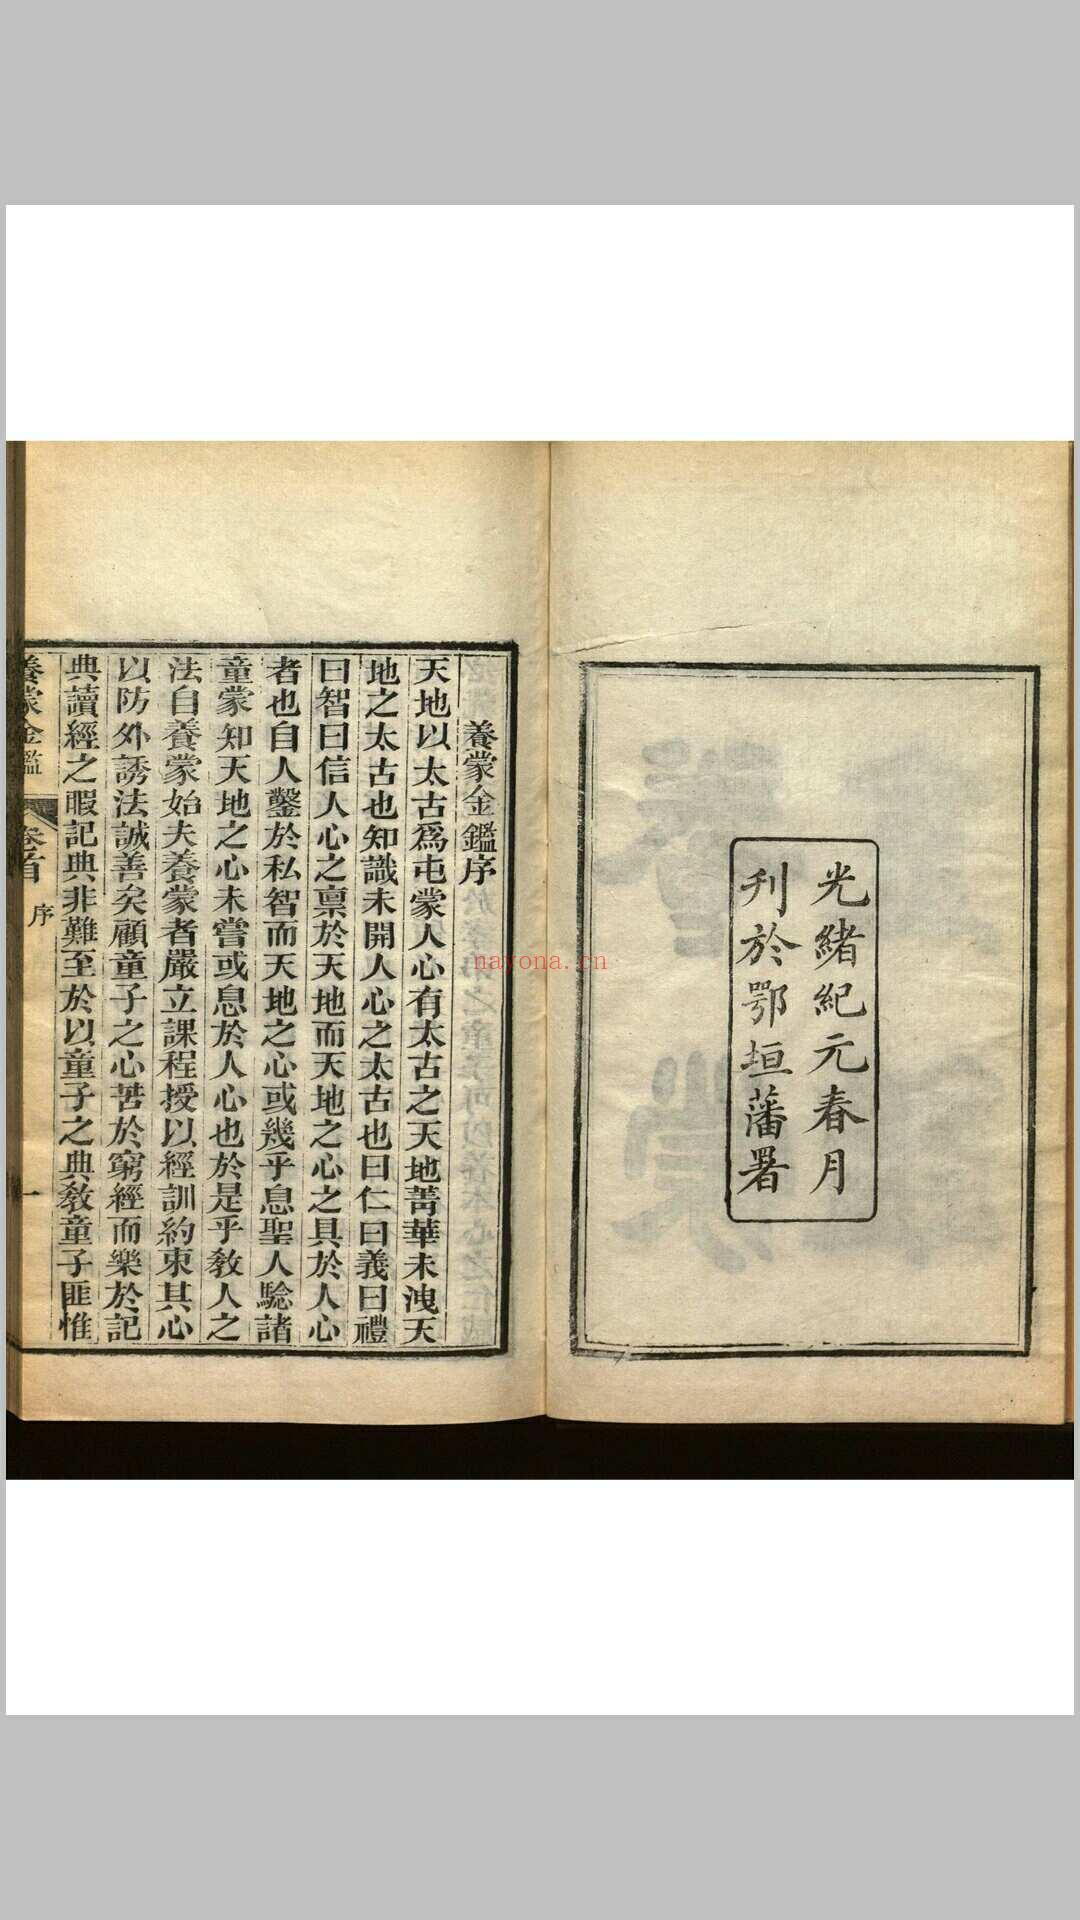 光緒紀元春月
刋於鄂垣藩署
養蒙金鑑序
天地以太古爲屯蒙人心有太古之天地菁華未洩天
地之太古也知識未開人心之太古也曰仁曰義曰禮
曰智曰信人心之稟於天地而天地之心之具於人心
者也自人鑿於私智而天地之心或幾乎息聖人驗諸
童蒙知天地之心未嘗或息於人心也於是乎教人之
法自養蒙始夫養蒙者嚴立課程授以經訓約束其心
以防外誘法誠善矣顧童子之心苦於窮經而樂於記
典讀經之暇記典非難至於以童子之典教童子匪惟
養蒙金鑑
卷首
序
一
nayona.cn